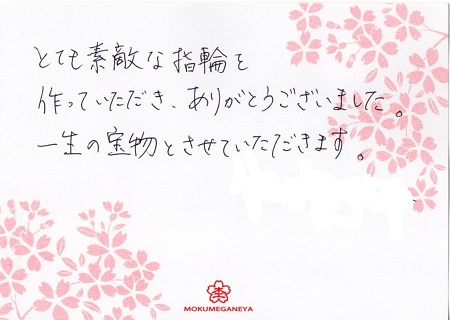 とても素敵な指輪を
作っていただき、ありがとうございました。
一生の宝物とさせていただきます。
MOKUMEGANEYA